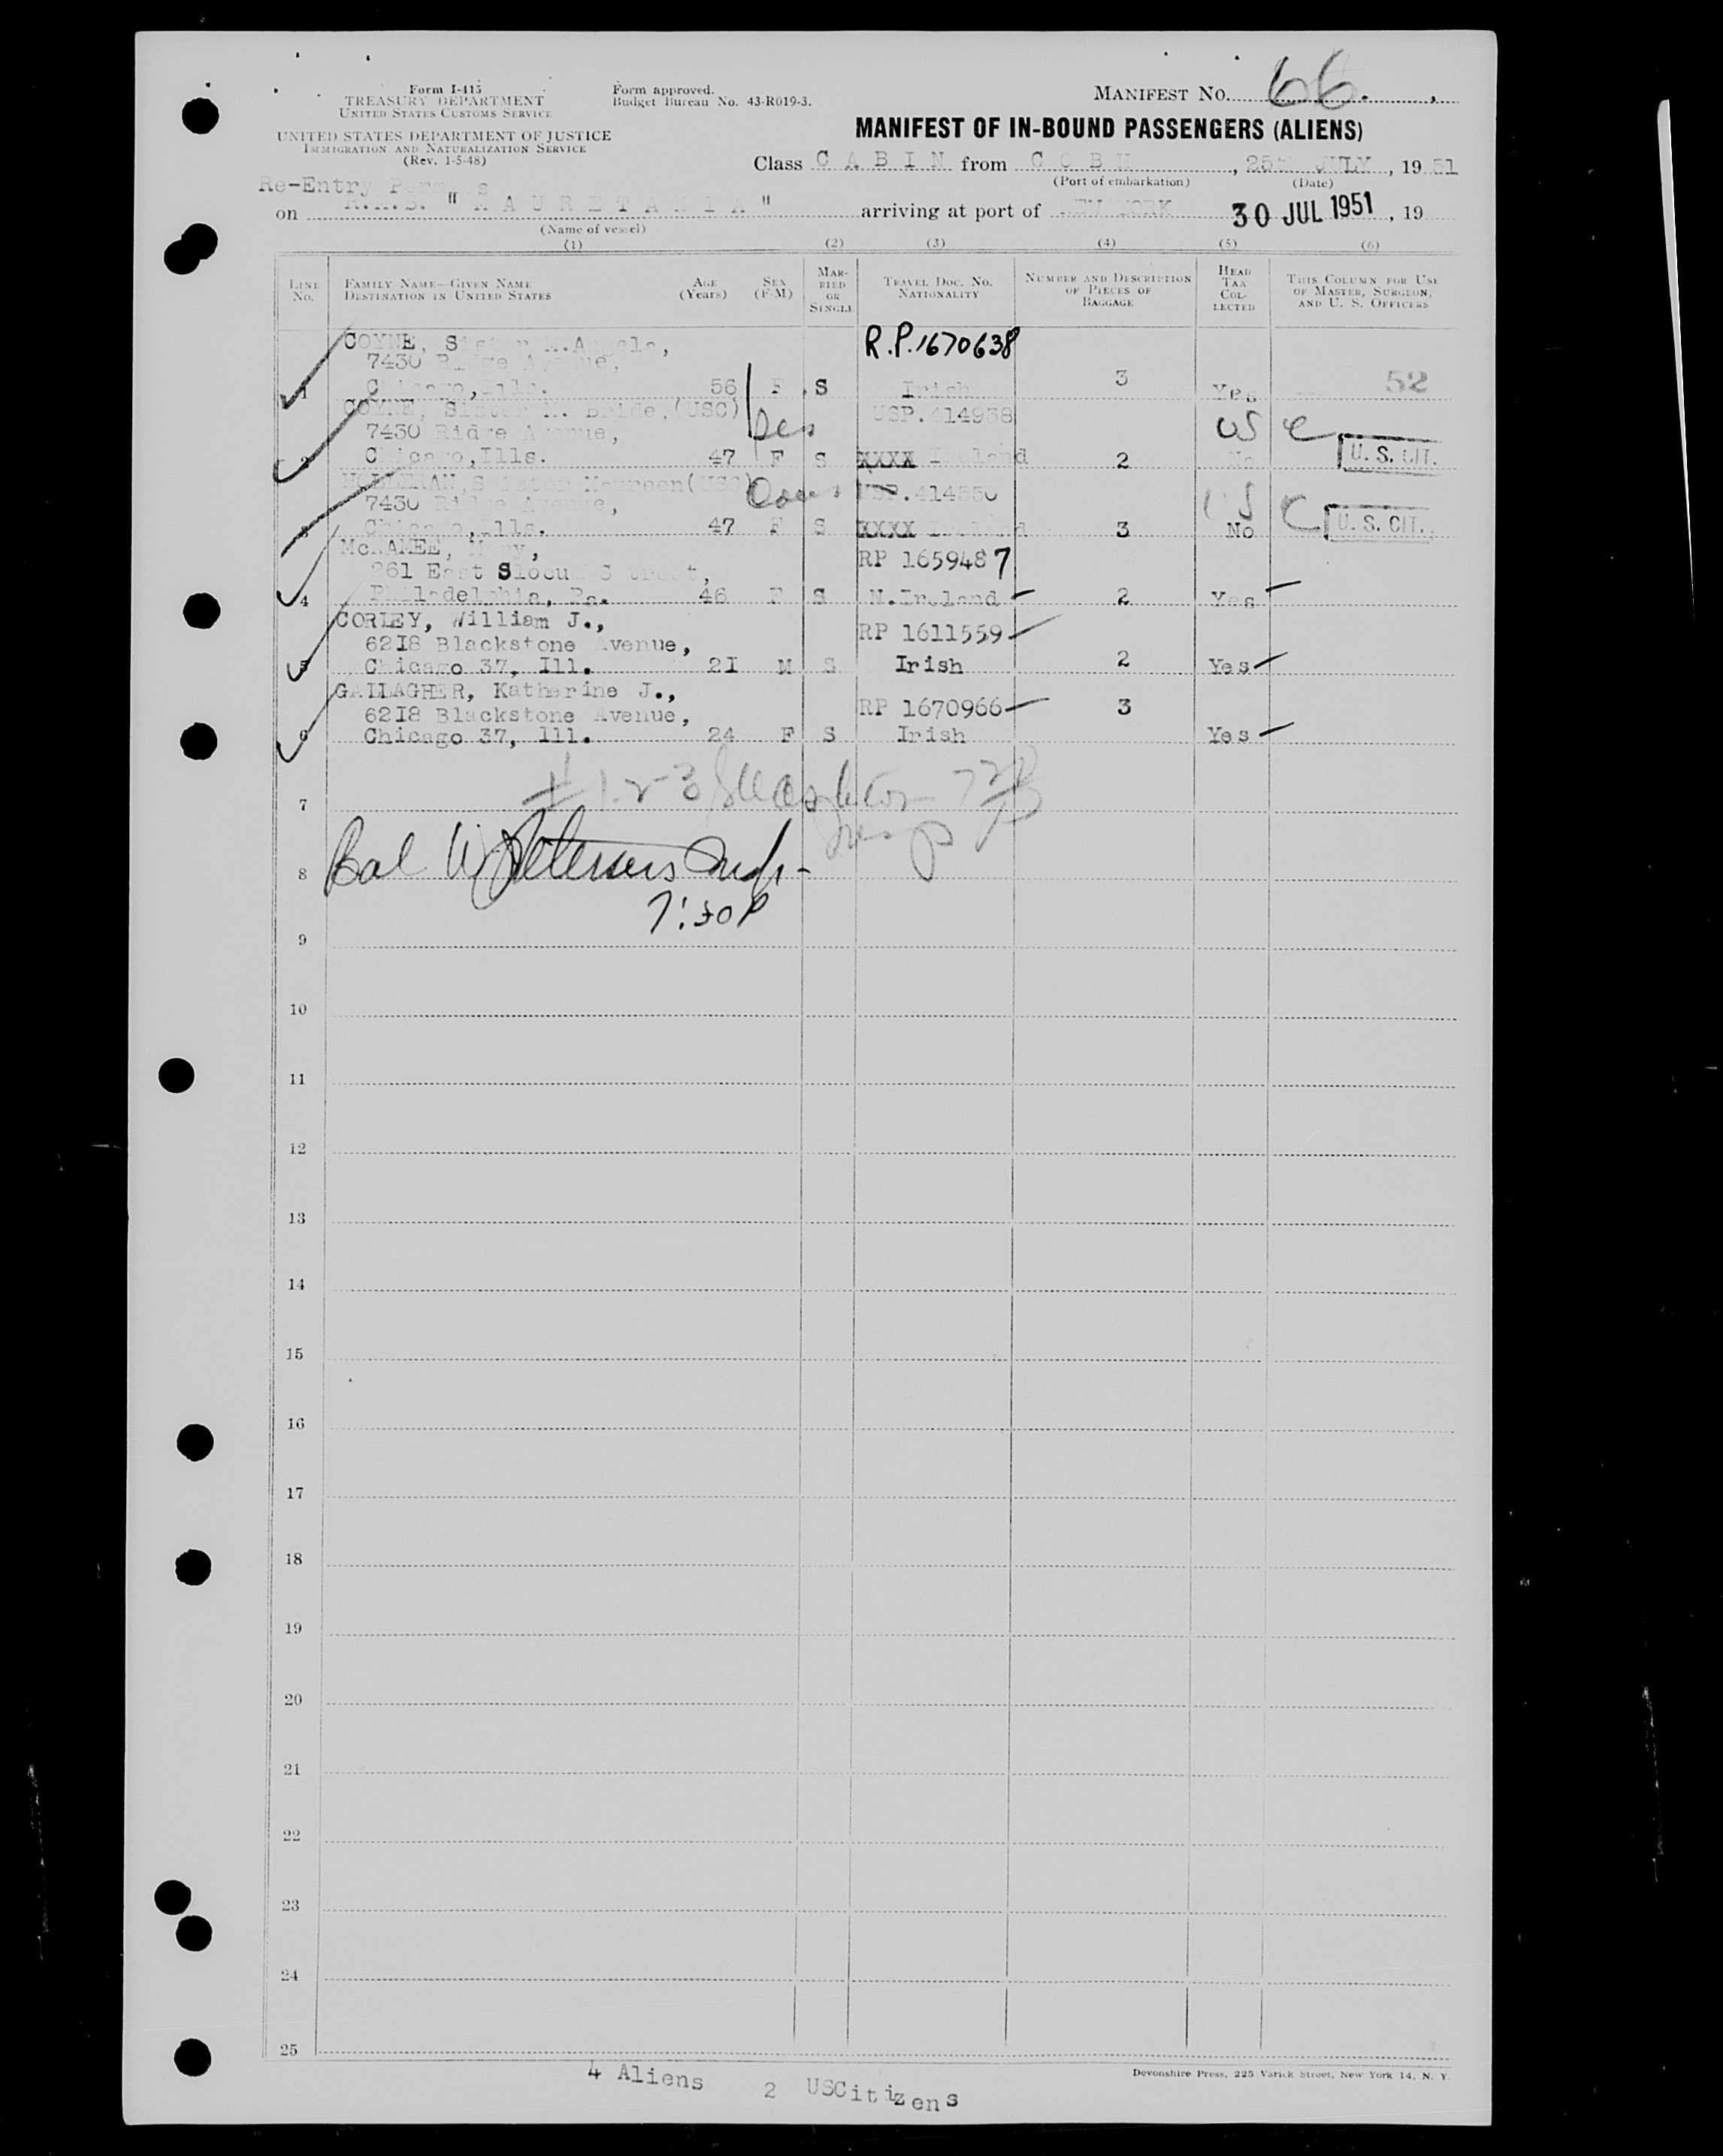 Form I-415
TREASURY DEPARTMENT
UNITED STATES CUSTOMS SERVICE
UNITED STATES DEPARTMENT OF JUSTICE
IMMIGRATION AND NATURALIZATION SERVICE
(Rev. 1-5-48)
Form approved.
Budget Bureau No. 43-R019-3.
MANIFEST NO. 66.
MANIFEST OF IN-BOUND PASSENGERS (ALIENS)
Class CABIN from COBH, 25th JULY, 1951
(Port of embarkation) (Date)
Re-Entry
on R.M.S. "MAURETANIA" arriving at port of NEW YORK 30 JUL 1951, 19
(Name of vessel)
(1) (2) (3) (4) (5) (6)
LINE No. FAMILY NAME—GIVEN NAME DESTINATION IN UNITED STATES AGE (Years) SEX (F-M) MARRIED OR SINGLE TRAVEL DOC. NO. NATIONALITY NUMBER AND DESCRIPTION OF PIECES OF BAGGAGE HEAD TAX COLLECTED THIS COLUMN FOR USE OF MASTER, SURGEON, AND U. S. OFFICERS
COYNE, Sister M. R.P.1670638
7430 Ridge Avenue,
1 Chicago, Ills. 56 F S Irish 3 Yes 52
COYNE, Sister M. Bride, (USC) USP.414938 US C
7430 Ridge Avenue,
2 Chicago, Ills. 47 F S XXXX Ireland 2 No U. S. CIT.
Sister Maureen (USC) USP.414550 US C
7430 Ridge Avenue,
3 Chicago, Ills. 47 F S XXXX Ireland 3 No U. S. CIT.
McNAMEE, Mary, RP 1659487
261 East Slocum Street,
4 Philadelphia, Pa. 46 F S N.Ireland 2 Yes
CORLEY, William J., RP 1611559
6218 Blackstone Avenue,
5 Chicago 37, Ill. 21 M S Irish 2 Yes
GALLAGHER, Katherine J., RP 1670966
6218 Blackstone Avenue, 3
6 Chicago 37, Ill. 24 F S Irish Yes
# 1-2-3
7
8
7:30P
9
10
11
12
13
14
15
16
17
18
19
20
21
22
23
24
25
4 Aliens 2 USCitizens
Devonshire Press, 225 Varick Street, New York 14, N. Y.